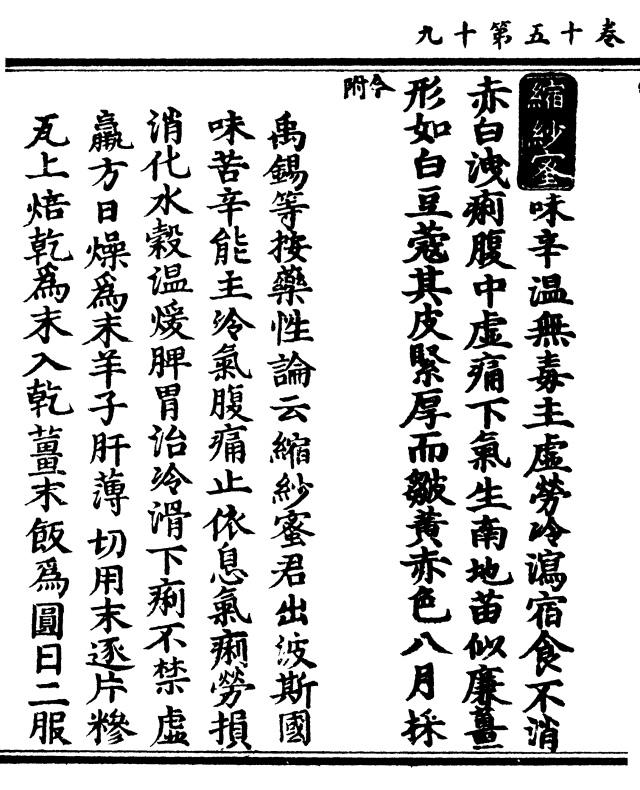 卷十五第十九
縮紗蜜味辛温無毒主虛勞冷瀉宿食不消
赤白洩痢腹中虛痛下氣生南地苗似廉薑
形如白豆蔻其皮緊厚而皺黃赤色八月採
今附
禹錫等按藥性論云縮紗蜜君出波斯國
味苦辛能主冷氣腹痛止休息氣痢勞損
消化水穀温煖脾胃治冷滑下痢不禁虛
羸方日燥爲末羊子肝薄切用末逐片糝
瓦上焙乾爲末入乾薑末飯爲圓日二服